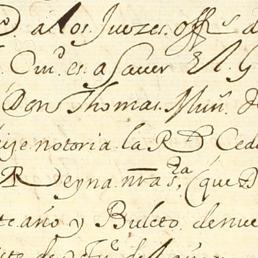 a los Juezes off.s d
Ciu.es a saver El G
Don Thomas Muñ. d
uje notoria la R.l Ced
Reyna nra s.ra (que D
te año y Buleto de nue